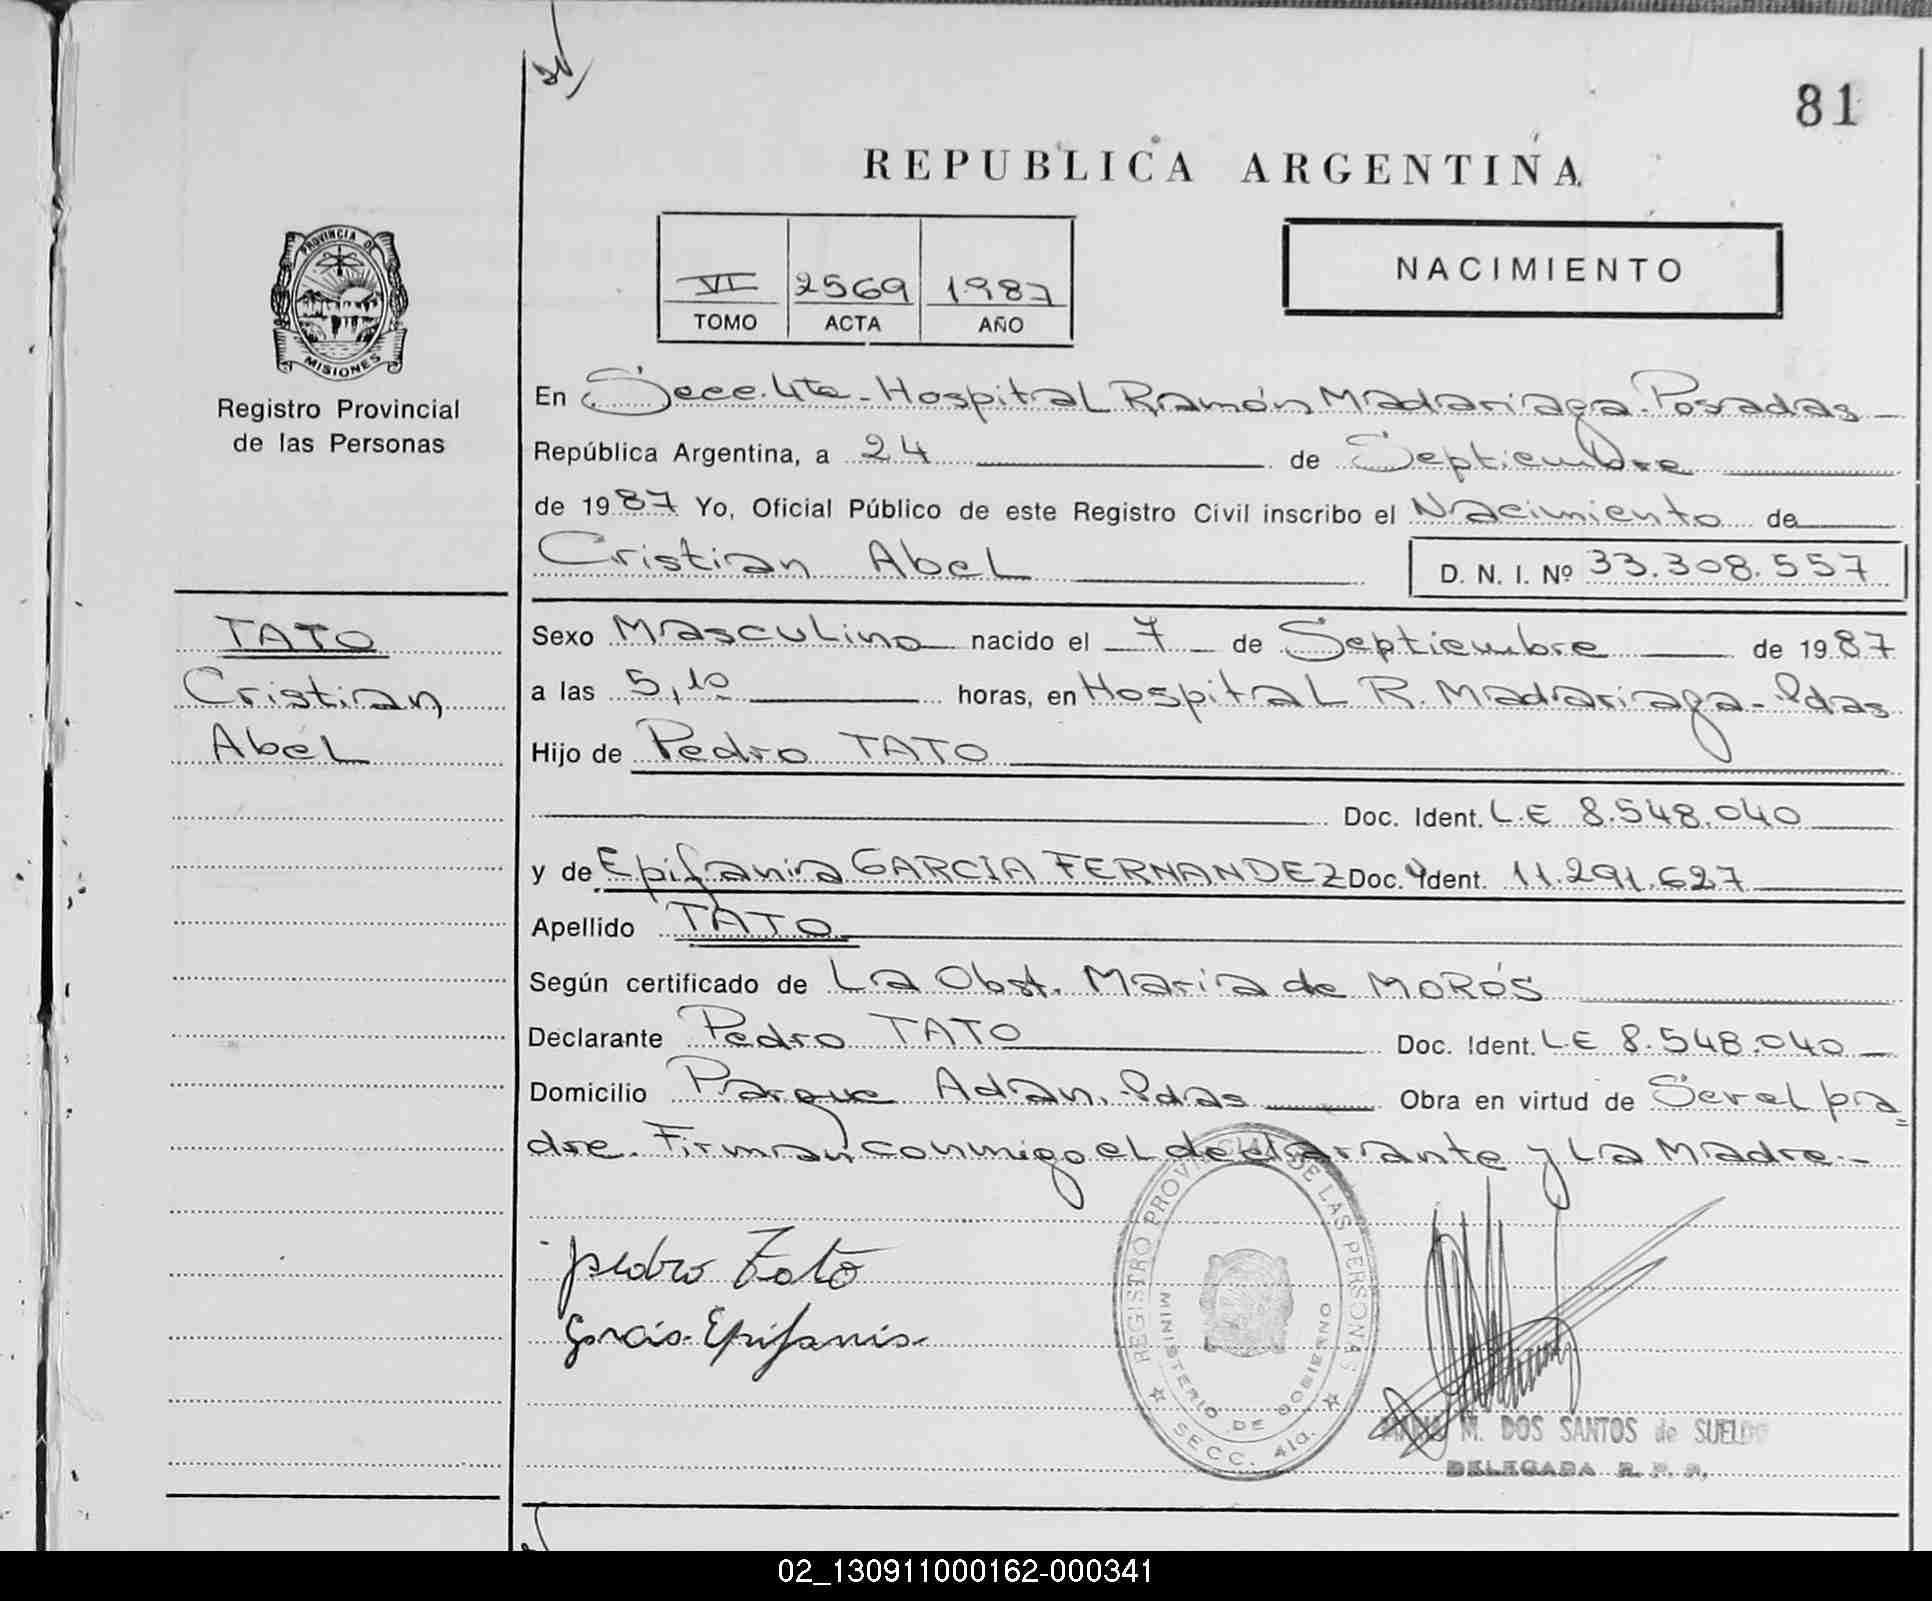 81
REPUBLICA ARGENTINA
VI 2569 1987
TOMO ACTA AÑO
NACIMIENTO
PROVINCIA DE
MISIONES
Registro Provincial
de las Personas
En Secc. 4ta - Hospital Ramón Madariaga. Posadas
República Argentina, a 24 de Septiembre
de 1987 Yo, Oficial Público de este Registro Civil inscribo el Nacimiento de
Cristian Abel D. N. I. Nº 33.308.557
TATO
Cristian
Abel
Sexo Masculino nacido el 7 de Septiembre de 1987
a las 5,10 horas, en Hospital R. Madariaga - Pdas
Hijo de Pedro TATO
Doc. Ident. L.E 8.548.040
y de Epifania GARCIA FERNANDEZ Doc. Ident. 11.291.627
Apellido TATO
Según certificado de La Obst. Maria de MORÓS
Declarante Pedro TATO Doc. Ident. L.E 8.548.040
Domicilio Parque Adan. Pdas Obra en virtud de Ser el pa=
dre. Firman conmigo el declarante y La Madre.-
pedro Tato
Garcia Epifania
REGISTRO PROVINCIAL DE LAS PERSONAS
MINISTERIO DE GOBIERNO
SECC. 4ta.
M. DOS SANTOS de SUELDO
DELEGADA R. P. P.
02_130911000162-000341